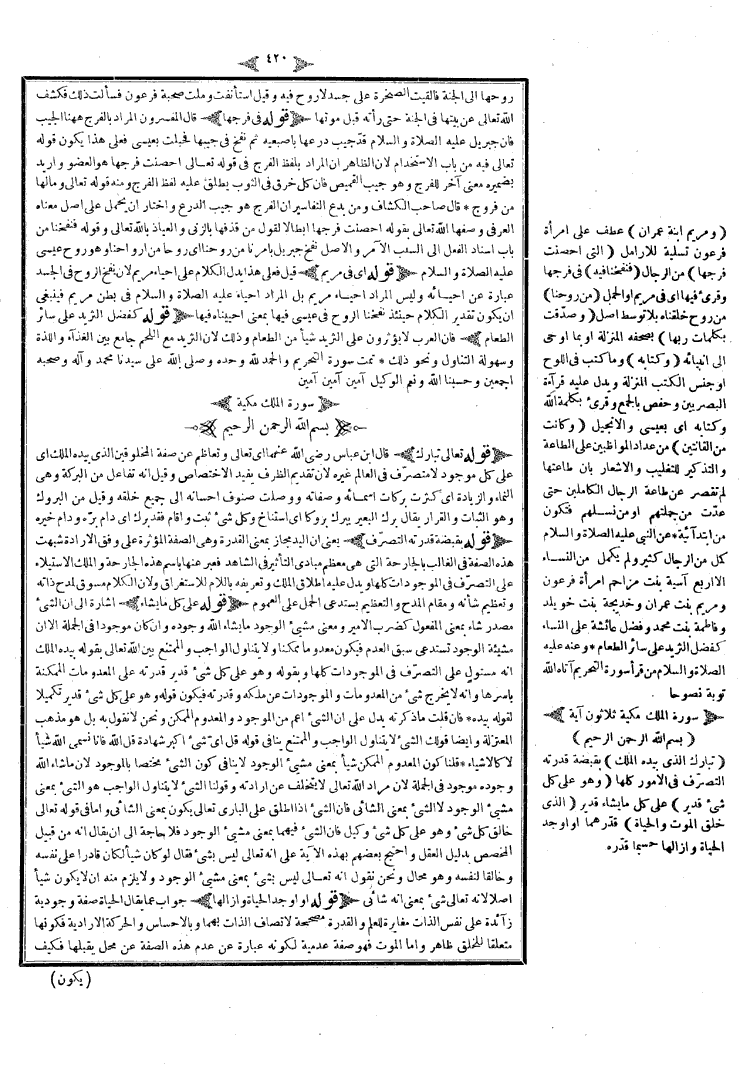 ٤٢٠
روحها الى الجنة فالقيت الصخرة على جسد لاروح فيه وقيل استأنفت وملت صحبة فرعون فسألت ذلك فكشف
الله تعالى عن بيتها فى الجنة حتى رأته قبل موتها قوله فى فرجها قال المفسرون المراد بالفرج ههنا الجيب
فان جبريل عليه الصلاة و السلام قد جيب درعها باصبعيه ثم نفخ فى جيبها فحبلت بعيسى فعلى هذا يكون قوله
تعالى فيه من باب الاستخدام لان الظاهر ان المراد بلفظ الفرج فى قوله تعالى احصنت فرجها هو العضو و اريد
بضميره معنى آخر للفرج و هو جيب القميص فان كل خرق فى الثوب يطلق عليه لفظ الفرج ومنه قوله تعالى ومالها
من فروج * قال صاحب الكشاف ومن بدع التفاسير ان الفرج هو جيب الدرع و اختار ان يحمل على اصل معناه
العرفى و صفها الله تعالى بقوله احصنت فرجها ابطالا لقول من قذفها بالزنى و العياذ بالله تعالى و قوله فنفخنا من
باب اسناد الفعل الى السبب الآمر و الاصل نفخ جبريل بامرنا من روحنا اى روحا من ارواحنا وهو روح عيسى
عليه الصلاة و السلام قوله اى فى مريم قيل فعلى هذا يدل الكلام على احياء مريم لان نفخ الروح فى الجسد
عبارة عن احيائه و ليس المراد احياء مريم بل المراد احياء عليه الصلاة و السلام فى بطن مريم فينبغى
ان يكون تقدير الكلام حينئذ نفخنا الروح فى عيسى فيها بمعنى احييناه فيها قوله كفضل الثريد على سائر
الطعام فان العرب لايؤثرون على الثريد شيأ من الطعام وذلك لان الثريد مع اللحم جامع بين الغذاء و اللذة
وسهولة التناول ونحو ذلك * تمت سورة التحريم و الحمد لله وحده و صلى الله على سيدنا محمد و آله و صحبه
اجمعين و حسبنا الله و نعم الوكيل آمين آمين آمين
سورة الملك مكية
بسم الله الرحمن الرحيم
قوله تعالى تبارك قال ابن عباس رضى الله عنهما اى تعالى و تعاظم عن صفة المخلوقين الذى بيده الملك اى
على كل موجود لامتصرف فى العالم غيره لان تقديم الظرف يفيد الاختصاص و قيل انه تفاعل من البركة وهى
النماء و الزيادة اى كثرت بركات اسمائه و صفاته و وصلت صنوف احسانه الى جميع خلقه و قيل من البروك
وهو الثبات و القرار يقال برك البعير يبرك بروكا اى استناخ وكل شئ ثبت و اقام فقد برك اى دام بره و دام خيره
قوله بقبضة قدرته التصرف يعنى ان اليد مجاز بمعنى القدرة وهى الصفة المؤثرة على وفق الارادة شبهت
هذه الصفة فى الغالب بالجارحة التى هى معظم مبادى التأثير فى الشاهد فعبر عنها باسم هذه الجارحة و الملك الاستيلاء
على التصرف فى الموجودات كلها ويدل عليه اطلاق الملك و تعريفه باللام للاستغراق ولان الكلام مسوق لمدح ذاته
و تعظيم شأنه و مقام المدح و التعظيم يستدعى الحمل على العموم قوله على كل مايشاء اشارة الى ان الشئ
مصدر شاء بمعنى المفعول كضرب الامير و معنى مشيئ الوجود مايشاء الله وجوده و ان كان موجودا فى الجملة الا ان
مشيئة الوجود تستدعى سبق العدم فيكون معدوما ممكنا و لايتناول الواجب و الممتنع بين الله تعالى بقوله بيده الملك
انه مستول على التصرف فى الموجودات كلها وبقوله و هو على كل شئ قدير قدرته على المعدومات الممكنة
باسرها و انه لايخرج شئ من المعدومات و الموجودات عن ملكه و قدرته فيكون قوله و هو على كل شئ قدير تكميلا
لقوله بيده * فان قلت ماذكرته يدل على ان الشئ اعم من الموجود و المعدوم الممكن ونحن لانقول به بل هو مذهب
المعتزلة و ايضا قولك الشئ لايتناول الواجب و الممتنع ينافى قوله قل اى شئ اكبر شهادة قل الله فانا نسمى الله شيأ
لاكالاشياء * قلنا كون المعدوم الممكن شيأ بمعنى مشيئ الوجود لاينافى كون الشئ مختصا بالموجود لان ماشاء الله
وجوده موجود فى الجملة لان مراد الله تعالى لايتخلف عن ارادته و قولنا الشئ لايتناول الواجب هو الشئ بمعنى
مشيئ الوجود لا الشئ بمعنى الشائى فان الشئ اذا اطلق على البارى تعالى يكون بمعنى الشائى و اما فى قوله تعالى
خالق كل شئ و هو على كل شئ وكيل فان الشئ فيهما بمعنى مشيئ الوجود فلا حاجة الى ان يقال انه من قبيل
المخصص بدليل العقل و احتج بعضهم بهذه الآية على انه تعالى ليس بشئ فقال لو كان شيأ لكان قادرا على نفسه
و خالقا لنفسه وهو محال ونحن نقول انه تعالى ليس بشئ بمعنى مشيئ الوجود و لايلزم منه ان لايكون شيأ
اصلا لانه تعالى شئ بمعنى انه شائى قوله او اوجد الحياة و ازالها جواب عما يقال الحياة صفة وجودية
زائدة على نفس الذات مغايرة للعلم و القدرة مصححة لاتصاف الذات بهما و بالاحساس و الحركة الارادية فكونها
متعلقا للخلق ظاهر و اما الموت فهو صفة عدمية لكونه عبارة عن عدم هذه الصفة عن محل يقبلها فكيف
(يكون)
( و مريم ابنة عمران ) عطف على امرأة
فرعون تسلية للارامل ( التى احصنت
فرجها ) من الرجال ( فنفخنا فيه ) فى فرجها
وقرئ فيها اى فى مريم او الحمل ( من روحنا )
من روح خلقناه بلا توسط اصل ( و صدقت
بكلمات ربها ) بصحفه المنزلة او بما اوحى
الى انبيائه ( وكتابه ) وما كتب فى اللوح
او جنس الكتب المنزلة و يدل عليه قراءة
البصريين و حفص بالجمع و قرئ بكلمة الله
وكتابه اى بعيسى و الانجيل ( وكانت
من القانتين ) من عداد المواظبين على الطاعة
و التذكير للتغليب و الاشعار بان طاعتها
لم تقصر عن طاعة الرجال الكاملين حتى
عدت من جملتهم او من نسلهم فتكون
من ابتدائية * عن النبى عليه الصلاة و السلام
كمل من الرجال كثير ولم يكمل من النساء
الا اربع آسية بنت مزاحم امرأة فرعون
و مريم بنت عمران و خديجة بنت خويلد
و فاطمة بنت محمد و فضل عائشة على النساء
كفضل الثريد على سائر الطعام * وعنه عليه
الصلاة و السلام من قرأ سورة التحريم آتاه الله
توبة نصوحا .
سورة الملك مكية ثلاثون آية
( بسم الله الرحمن الرحيم )
( تبارك الذى بيده الملك ) بقبضة قدرته
التصرف فى الامور كلها ( وهو على كل
شئ قدير ) على كل مايشاء قدير ( الذى
خلق الموت و الحياة ) قدرهما او اوجد
الحياة و ازالها حسبما قدره